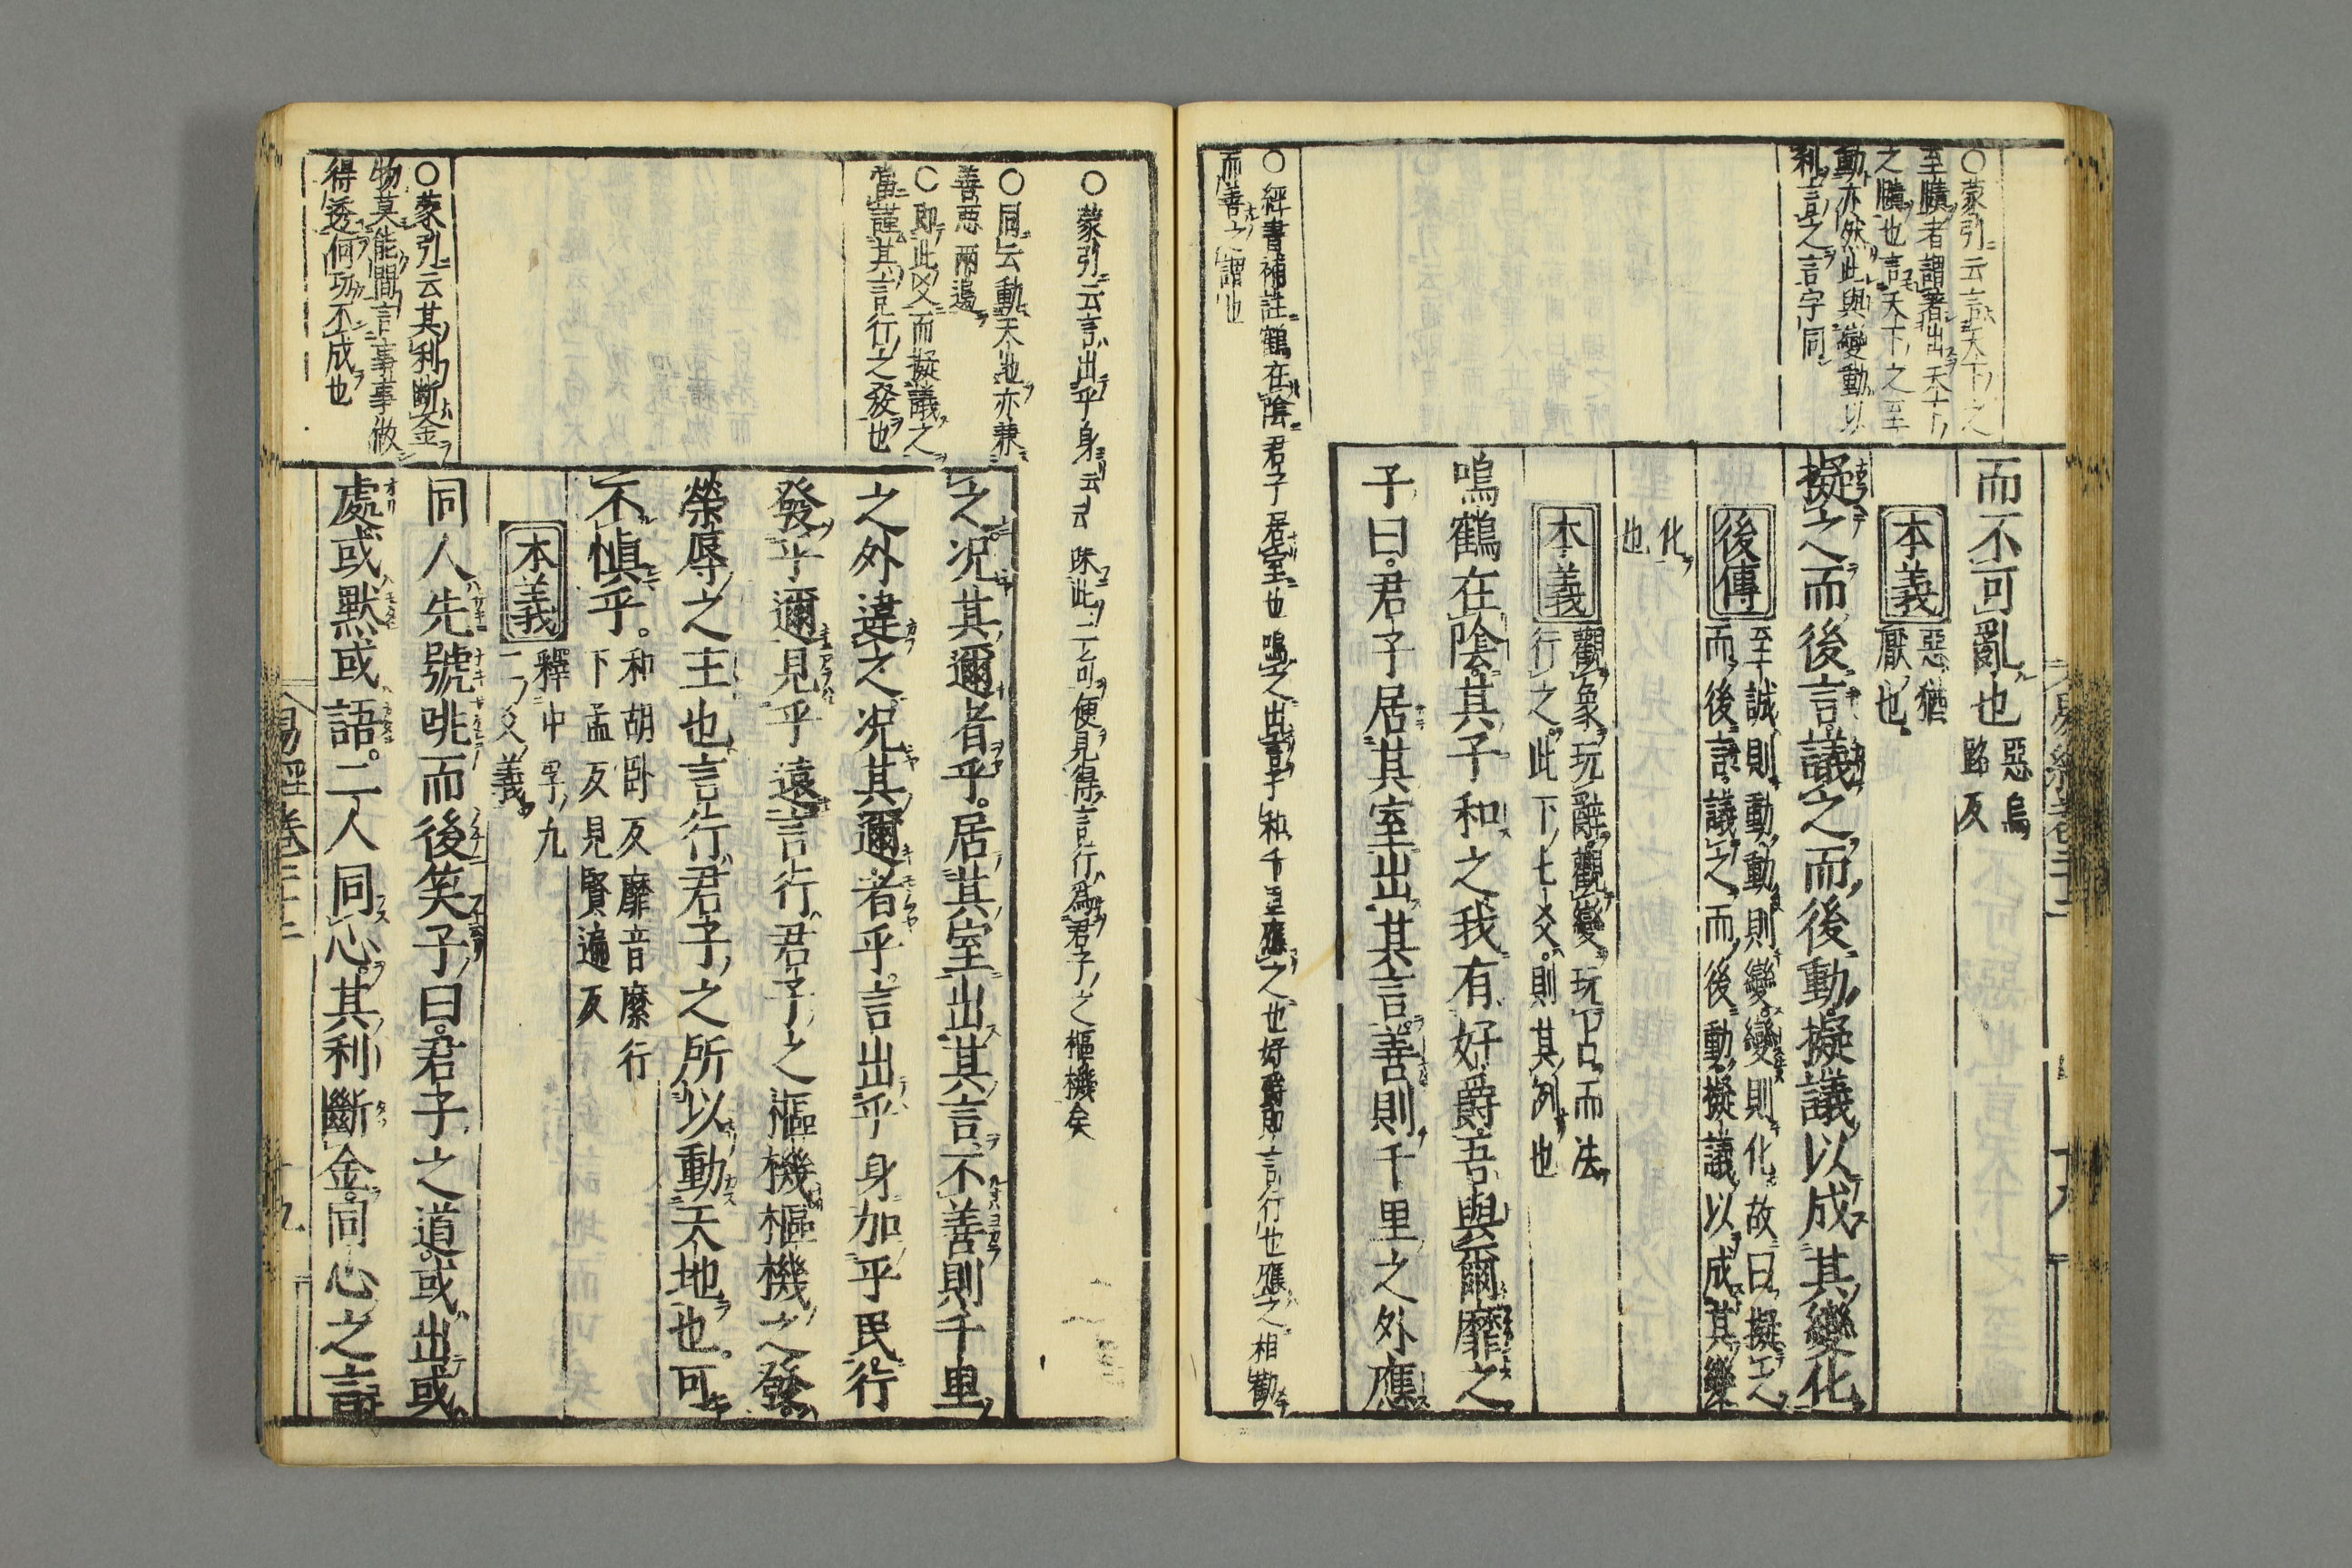 ○蒙引云言天下之
至賾者謂著出天下
之賾也言天下之至
動亦然此與變動以
利言之言字同
而不可亂也惡烏
路反
本義
惡猶
厭也
擬之而後言議之而後動擬議以成其變化
後傳
至誠則動動則變變則化故曰擬之
而後言議之而後動擬議以成其變
化
也
本義
觀象玩辭觀變玩占而法
行之此下七爻則其例也
鳴鶴在陰其子和之我有好爵吾與爾靡之
子曰君子居其室出其言善則千里之外應
○經書補註鶴在陰君子居室也鳴之出言乎和千里應之也好爵即言行也應之相勸
而善之謂也
○蒙引云言出乎身云云味此二句便見得言行為君子之樞機矣
○同云動天地亦兼
善惡兩邊
○即此爻而擬議之
當謹其言行之發也
之況其邇者乎居其室出其言不善則千里
之外違之況其邇者乎言出乎身加乎民行
發乎邇見乎遠言行君子之樞機樞機之發
榮辱之主也言行君子之所以動天地也可
不慎乎和胡臥反靡音縻行
下孟反見賢遍反
本義
釋中孚九
二爻義
○蒙引云其利斷金
物莫能間言事事做
得透何功不成也
同人先號咷而後笑子曰君子之道或出或
處或默或語二人同心其利斷金同心之言
易經卷二十二
十九